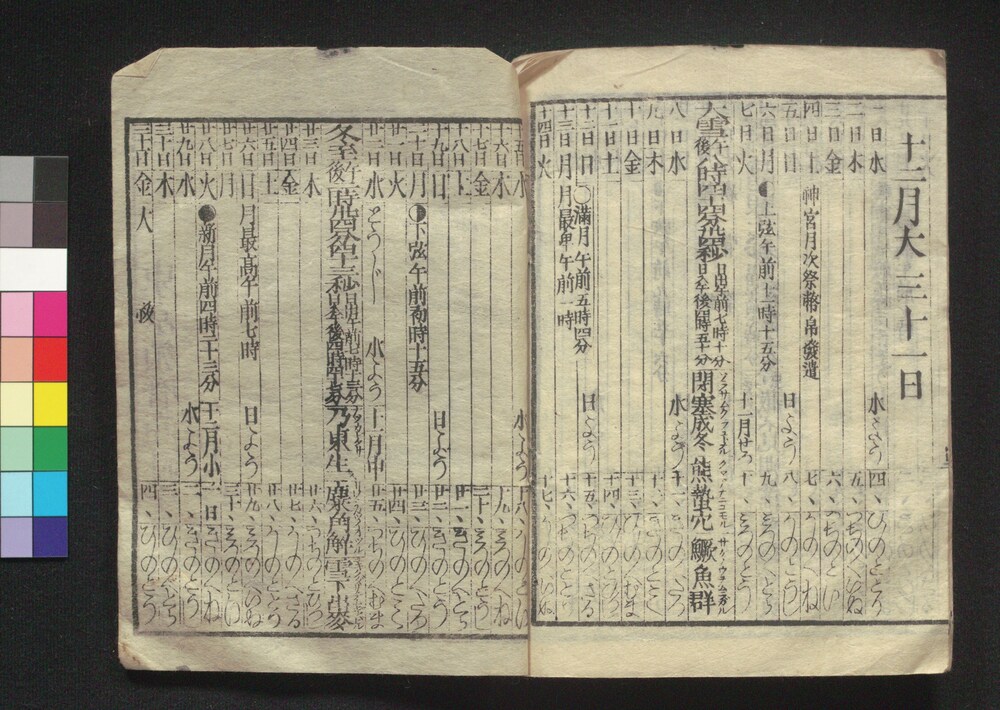 十二月大三十一日
一日水 水よう 四、ひのとう
二日木 五、つちの
三日金 六、つちのと
四日土 神宮月次祭幣帛發遣 七、かのへね
五日日 日よう 八、かのとうし
六日月 上弦午前十二時十五分 九、みつのへとら
七日火 十一月せつ 十、みつのとう
大雪 午後八時四十四分 日出午前七時十分 日入午後四時五十分 閉塞成冬 熊蟄穴 鱖魚群
八日水 水よう 十一、きのへたつ
九日木 十二、きのとみ
十日金 十三、ひのへむま
十一日土 十四、ひのとひつじ
十二日日 満月午前五時四分 日よう 十五、つちのへさる
十三日月 月最卑午前一時 十六、つちのととり
十四日火 十七、かのへいぬ
十五日水 水よう 十八、かのとい
十六日木 十九、みつのへね
十七日金 二十、みつのとうし
十八日土 廿一、きのへとら
十九日日 日よう 廿二、きのとう
二十日月 下弦午前 時十五分 廿三、ひのへたつ
廿一日火 廿四、ひのとみ
廿二日水 とうじ 水よう 十一月中 廿五、つちのへむま
冬至 午後 日出午前七時 日入午後四時 乃東生 麋角解 雪下出麥
廿三日木 廿六、つちのとひつじ
廿四日金 廿七、かのへさる
廿五日土 廿八、かのととり
廿六日日 月最高午前七時 日よう 廿九、みつのへいぬ
廿七日月 三十、みつのとい
廿八日火 新月午前四時二十三分 十二月小 一日きのへね
廿九日水 水よう 二、きのとうし
三十日木 三、ひのへとら
三十一日金 大 四、ひのとう